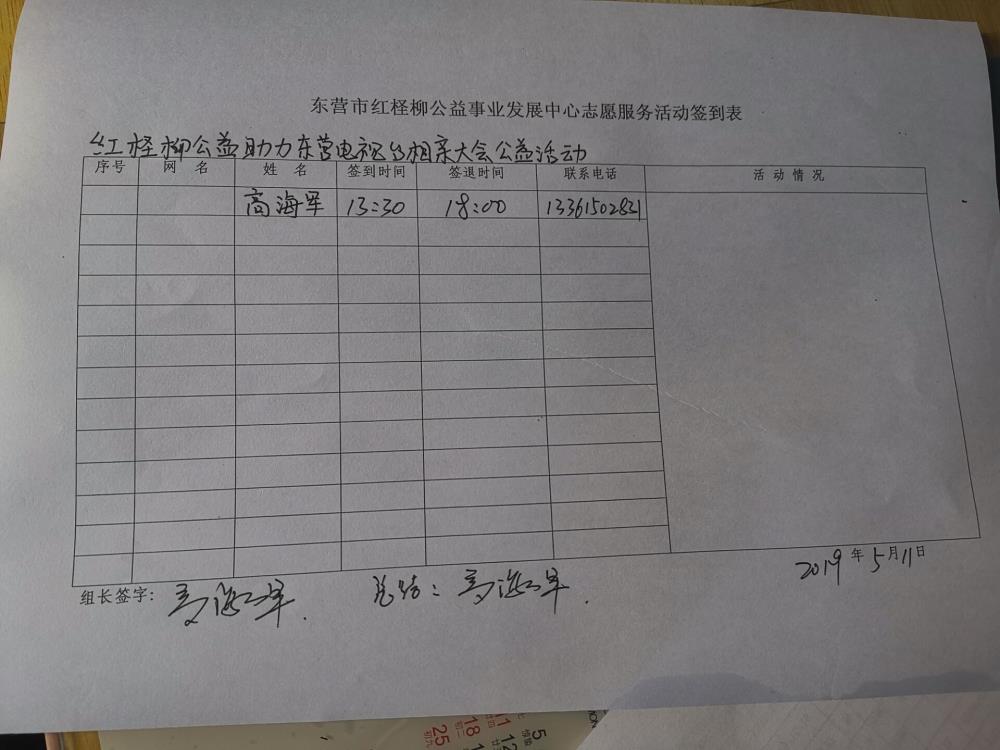 东营市红柽柳公益事业发展中心志愿服务活动签到表
红柽柳公益助力东营电视台相亲大会公益活动
序号 网 名 姓 名 签到时间 签退时间 联系电话 活 动 情 况
商海军 13:30 18:00 13361502831
2019年5月11日
组长签字: 商海军. 总结: 商海军.
5
11 12
18
25